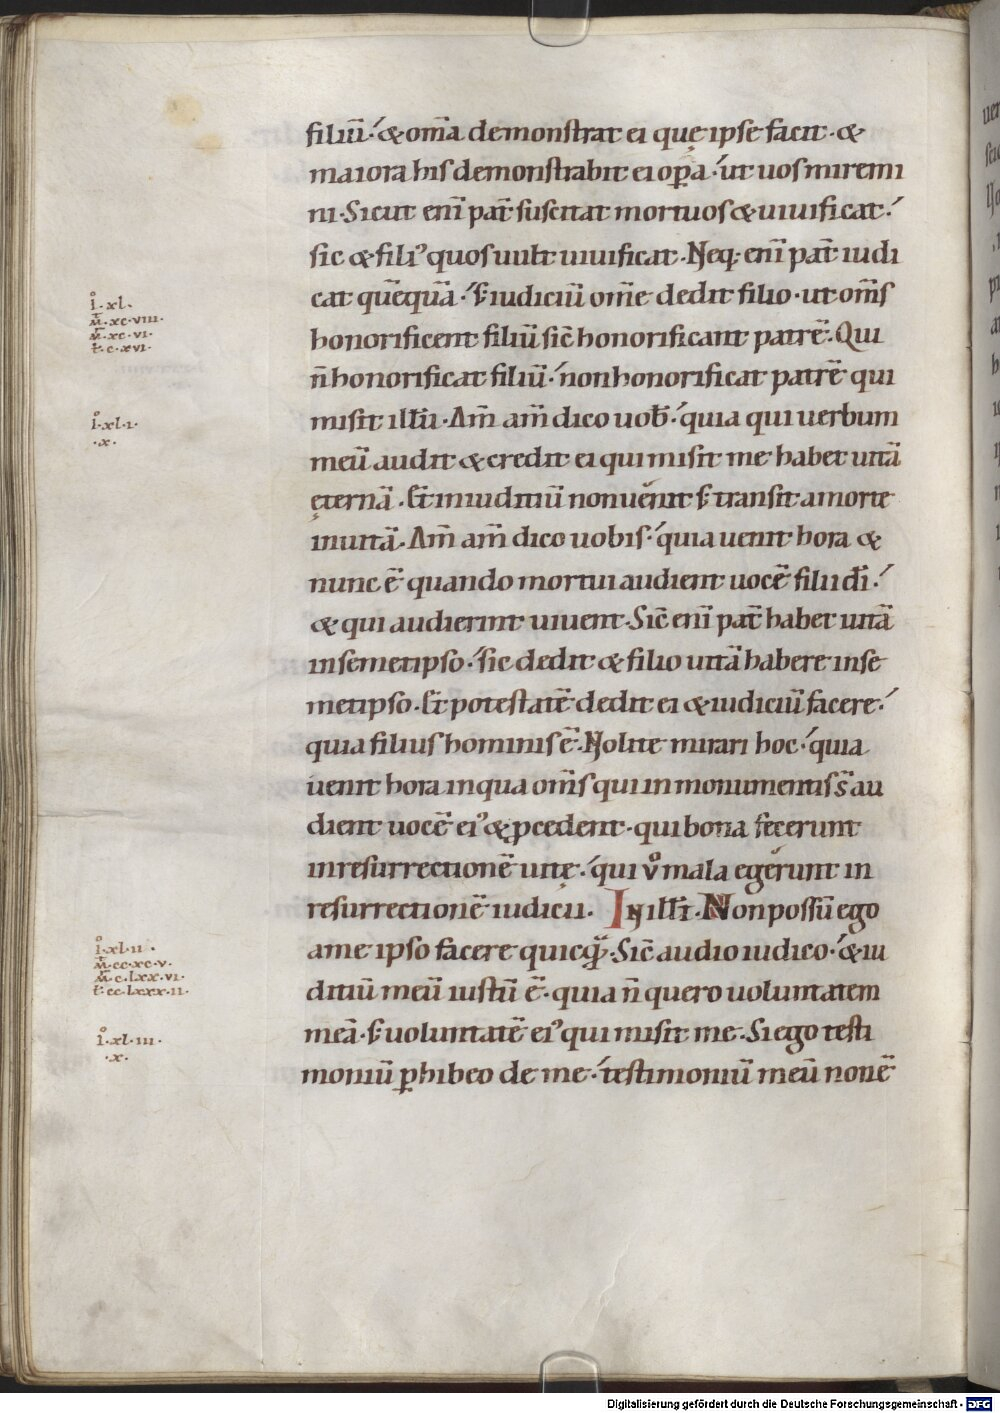 filiū. & om̄a demonstrat ei quę ipse facit. &
maiora his demonstrabit ei op̄a. ut uos miremi
ni. Sicut eni᷒ pat̄ suscitat mortuos & uiuificat.
sic & fili᷒ quos uult uiuificat. Neq; enī pat̄ iudi
cat quēquā. s; iudiciū om̄e dedit filio. ut om̄s
honorificent filiū sic̄ honorificant patrē. Qui
n̄ honorificat filiū. non honorificat patrē qui
misit illū. Am̄ am̄ dico uob̄. quia qui uerbum
meū audit & credit ei qui misit me habet uitā
ęternā. Et in iuditiū non uenit s; transit a morte
in uitā. Am̄ am̄ dico uobis. quia uenit hora &
nunc ē quando mortui audient uocē filii dī.
& qui audierint uiuent. Sic̄ enī pat̄ habet uitā
in semetipso. sic dedit & filio uitā habere in se
metipso. Et potestatē dedit ei & iudiciū facere.
quia filius hominis ē. Nolite mirari hoc. quia
uenit hora in qua om̄s qui in monumentis s̄ au
dient uocē ei᷒ & ꝓcedent. qui bona fecerunt
in resurrectionē uitę. qui ů mala egerunt in
resurrectionē iudicii. In ill̄i. Non possū ego
a me ipso facere quicq̄. Sic̄ audio iudico. & iu
ditiū meū iustū ē. quia n̄ quero uoluntatem
meā. s; uoluntatē ei᷒ qui misit me. Si ego testi
moniū ꝑhibeo de me. testimoniū meū non ē
i̊. xl.
m̄. xc. viii.
m̄. xc. vi.
t̄. c. xvi.
i̊. xl. i.
.x.
i̊. xl. ii.
m̄. cc. xc. v.
m̄. c. lxx. vi.
t̄. cc. lxxx. ii.
i̊. xl. iii.
.x.
Digitalisierung gefördert durch die Deutsche Forschungsgemeinschaft - DFG